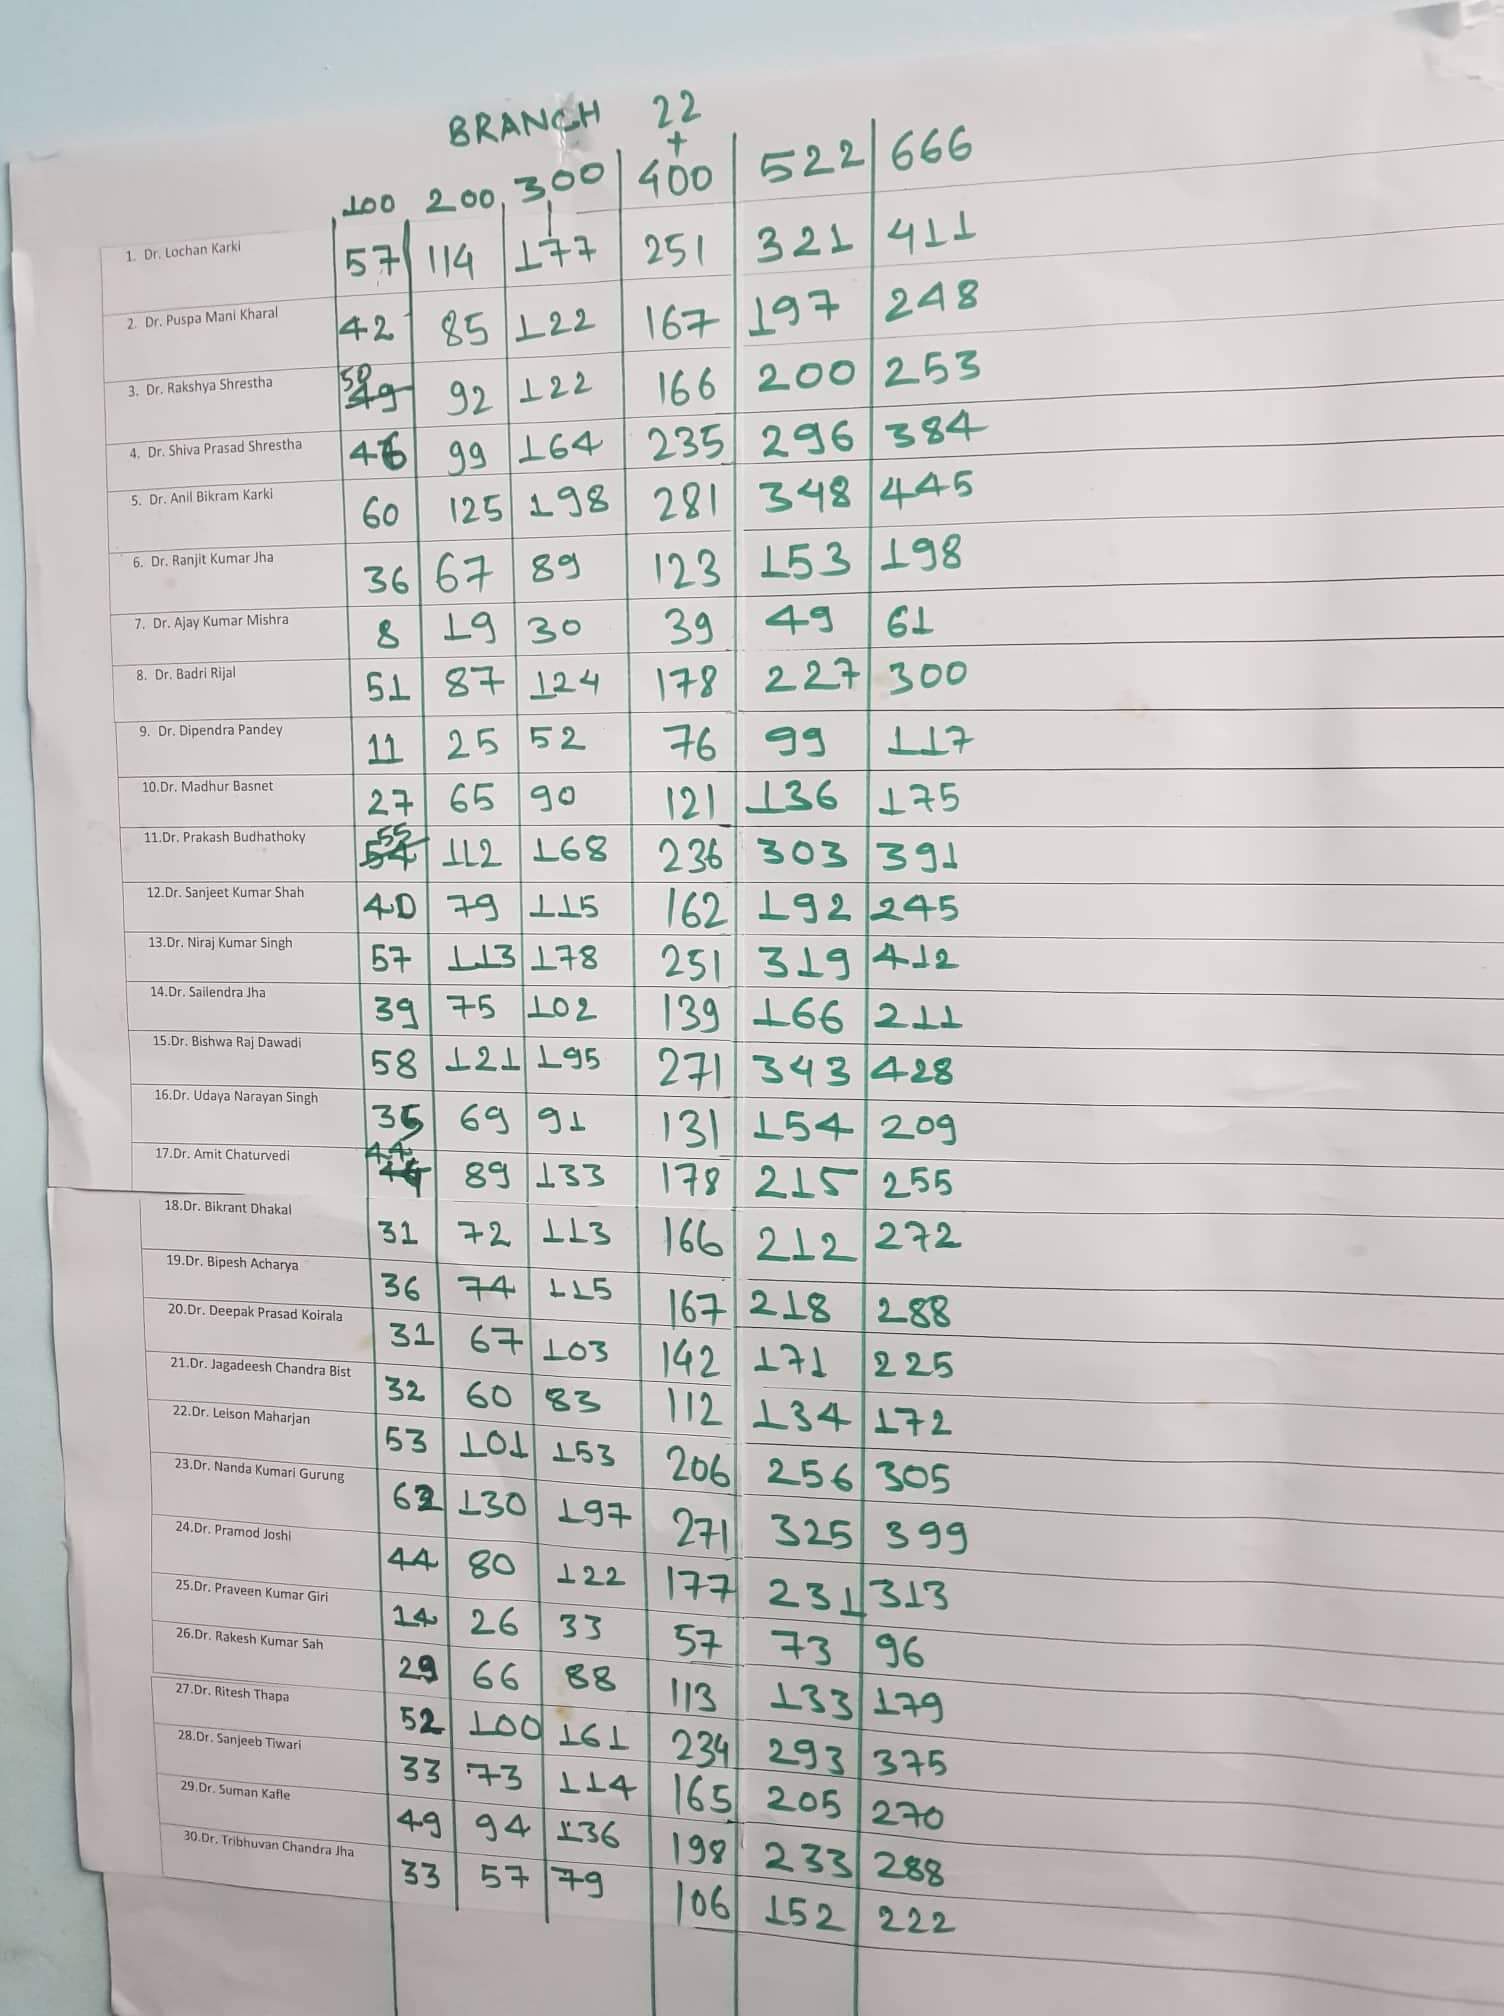 BRANCH 22
+
100 200 300 400 522 666
1. Dr. Lochan Karki 57 114 177 251 321 411
2. Dr. Puspa Mani Kharal 42 85 122 167 197 248
3. Dr. Rakshya Shrestha 50 49 92 122 166 200 253
4. Dr. Shiva Prasad Shrestha 46 99 164 235 296 384
5. Dr. Anil Bikram Karki 60 125 198 281 348 445
6. Dr. Ranjit Kumar Jha 36 67 89 123 153 198
7. Dr. Ajay Kumar Mishra 8 19 30 39 49 61
8. Dr. Badri Rijal 51 87 124 178 227 300
9. Dr. Dipendra Pandey 11 25 52 76 99 117
10.Dr. Madhur Basnet 27 65 90 121 136 175
11.Dr. Prakash Budhathoky 55 54 112 168 236 303 391
12.Dr. Sanjeet Kumar Shah 40 79 115 162 192 245
13.Dr. Niraj Kumar Singh 57 113 178 251 319 412
14.Dr. Sailendra Jha 39 75 102 139 166 211
15.Dr. Bishwa Raj Dawadi 58 121 195 271 343 428
16.Dr. Udaya Narayan Singh 35 69 91 131 154 209
17.Dr. Amit Chaturvedi 44 89 133 178 215 255
18.Dr. Bikrant Dhakal 31 72 113 166 212 272
19.Dr. Bipesh Acharya 36 74 115 167 218 288
20.Dr. Deepak Prasad Koirala 31 67 103 142 171 225
21.Dr. Jagadeesh Chandra Bist 32 60 83 112 134 172
22.Dr. Leison Maharjan 53 101 153 206 256 305
23.Dr. Nanda Kumari Gurung 62 130 197 271 325 399
24.Dr. Pramod Joshi 44 80 122 177 231 313
25.Dr. Praveen Kumar Giri 14 26 33 57 73 96
26.Dr. Rakesh Kumar Sah 29 66 88 113 133 179
27.Dr. Ritesh Thapa 52 100 161 234 293 375
28.Dr. Sanjeeb Tiwari 33 73 114 165 205 270
29.Dr. Suman Kafle 49 94 136 198 233 288
30.Dr. Tribhuvan Chandra Jha 33 57 79 106 152 222